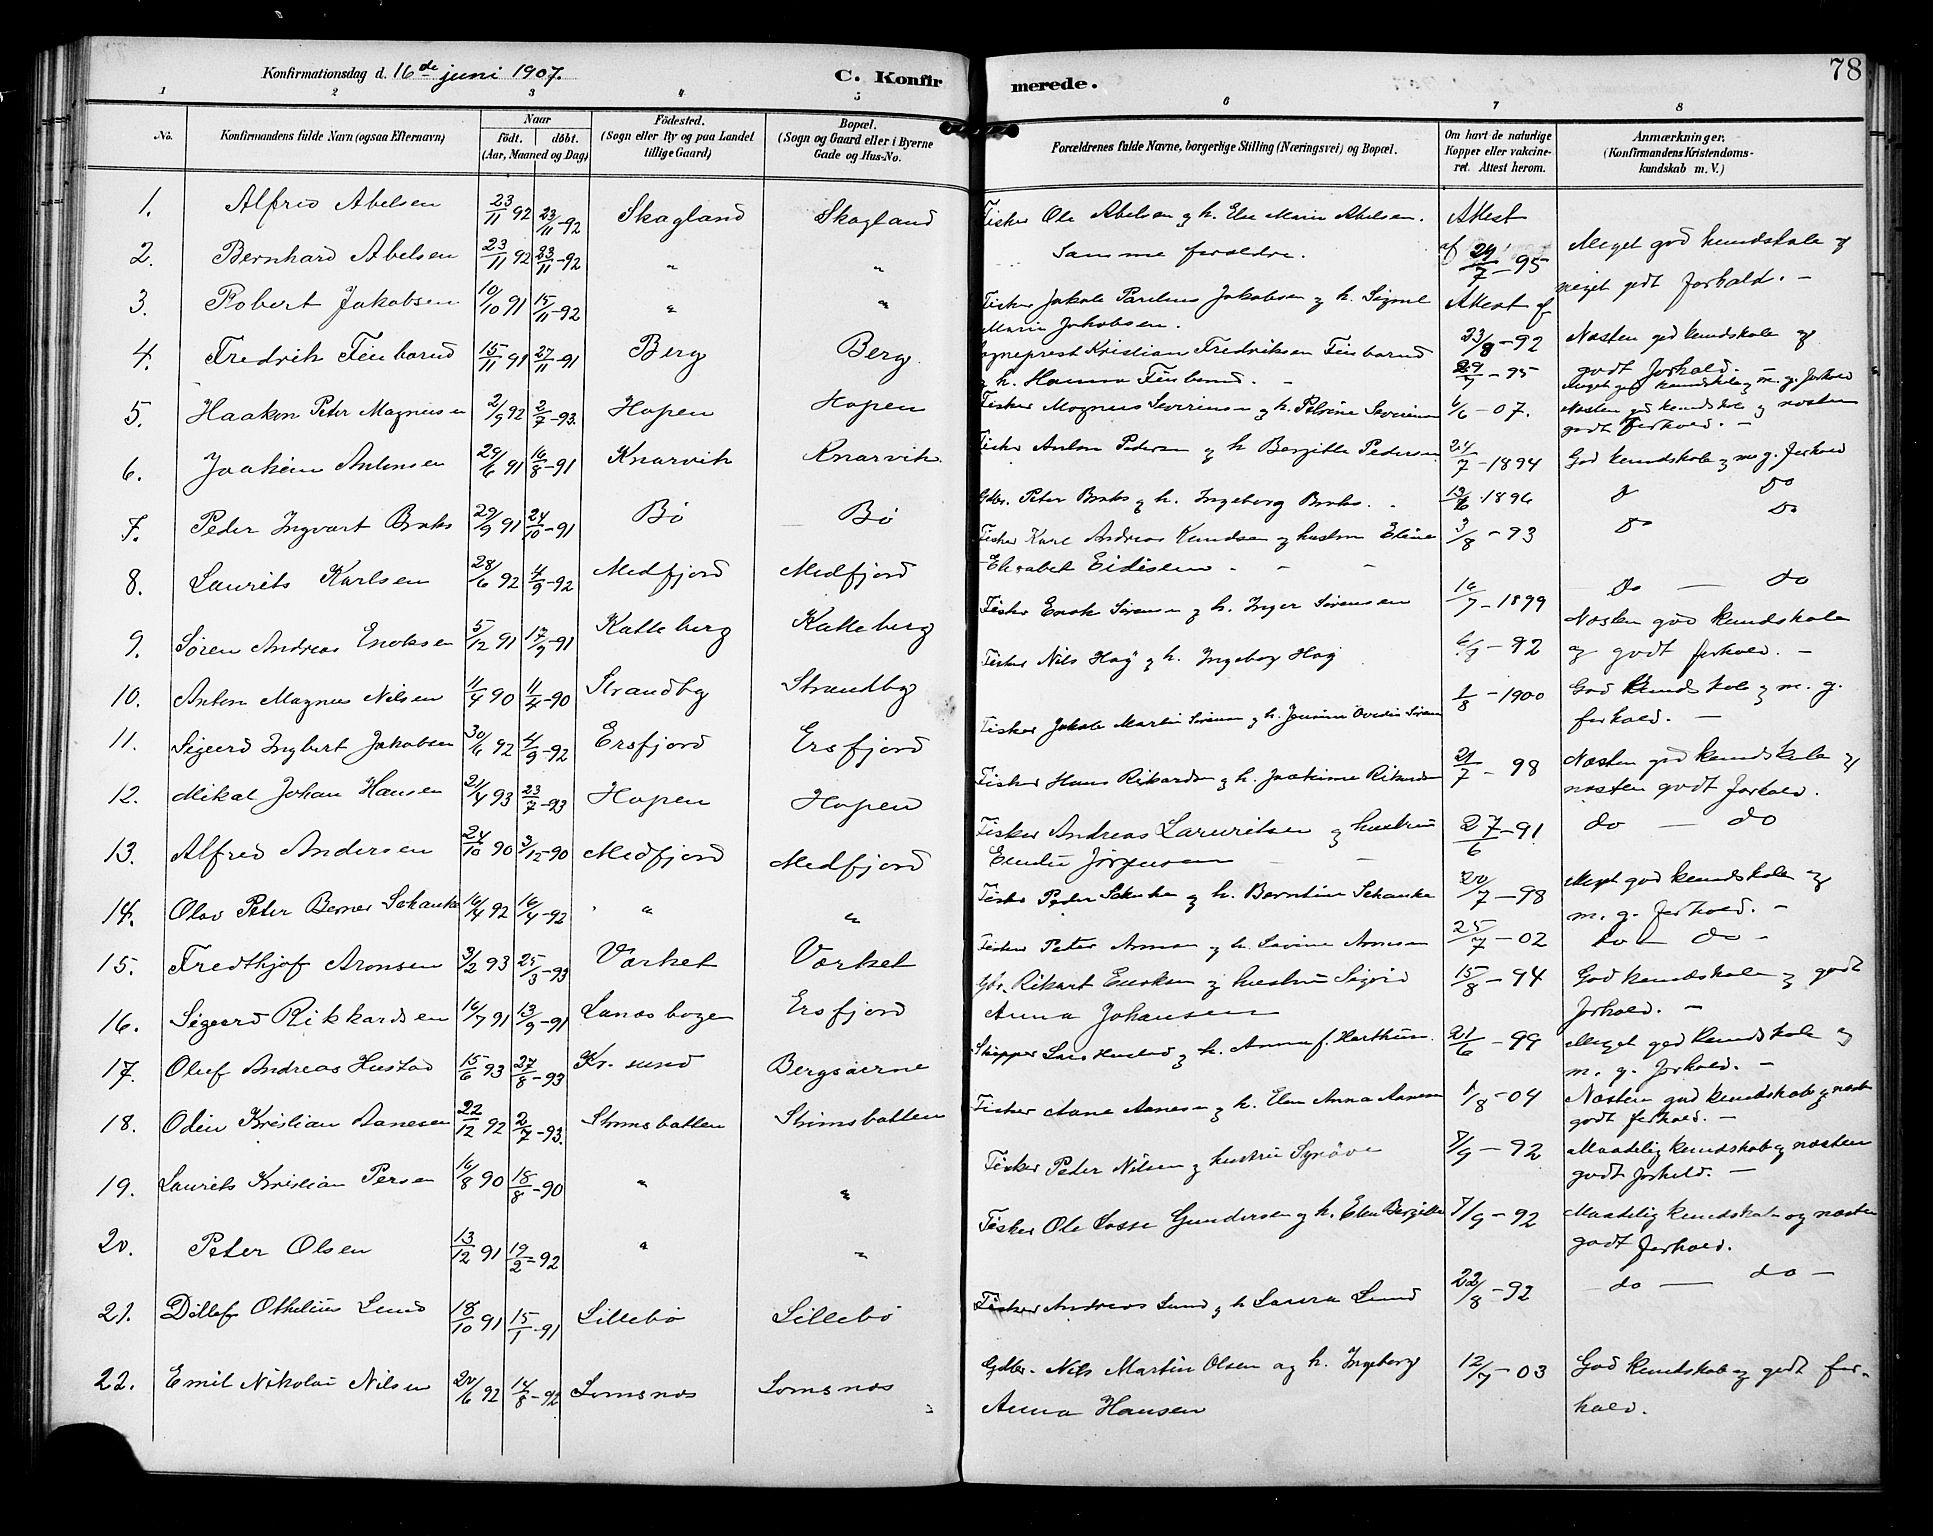 Konfirmationsdag d. 16de juni 1907. C. Konfir merede. 78
1 2 3 4 5 6 7 8
No. Konfirmandens fulde Navn (ogsaa Efternavn) Naar födt. döbt. (Aar, Maaned og Dag) Födested. (Sogn eller By og paa Landet tillige Gaard) Bopæl. (Sogn og Gaard eller i Byerne Gade og Hus-No. Forældrenes fulde Navne, borgerlige Stilling (Næringsvei) og Bopæl. Om havt de naturlige Kopper eller vakcineret. Attest herom. Anmærkninger, (Konfirmandens Kristendomskundskab m. V.)
1. Alfred Abelsen 23/11 92 23/11-92 Skagland Skagland Fisker Ole Abelsen og h. Else Marie Abelsen. Attest
2. Bernhard Abelsen 23/11 92 23/11-92 " " Samme foreldre. af 29/7-95 Meget god kundskab og meget godt forhold. -
3. Robert Jakobsen 10/10 91 15/11-92 " " Fisker Jakob Jakobsen og h. Signel Marie Jakobsen. Attest af 23/8-92 Næsten god kundskab og godt forhold. -
4. Fredrik 15/11 91 27/11-91 Berg Berg. Sogneprest Kristian Fredriksen og h. Hanna 29/7-95 Meget god kundskab og m. g. forhold
5. Haakon Peter Magnussen 2/9 92 2/7-93. Hopen Hopen Fisker Magnus Severinsen og h. 6/6-07. Næsten god kundskab og næsten godt forhold. -
6. Joakim Antonsen 29/6 91 16/8-91 Knarvik Knarvik. Fisker Anton Pedersen og h. Bergitte Pedersen 24/7-1894 God kundskab og m g. forhold
7. Peder Ingvart 29/9 91 24/10-91 Bö Bö Gdbr. Peter og h. Ingeborg 13/6-1896 do do
8. Laurits Karlsen 28/6 92 4/9-92 Medfjord Medfjord Fisker Karl Andreas Knudsen og hustru Eline Elisabet 3/8-93 do do
9. Sören Andreas Enoksen 5/12 91 17/9-91 Katteberg Katteberg Fisker Enok Sörensen og h. Inger Sörensen 10/7-1899 do - do
10. Anton Magnus Nilsen 11/4 90 11/4-90 Strandby Strandby Fisker Nils og h. Ingeborg 6/9-92 Næsten god kundskab og godt forhold. -
11. Sigurd Ingbert Jakobsen 30/6 92 4/9-92 Ersfjord Ersfjord Fisker Jakob Martin Sörensen og h. 1/8-1900 God kundskab og m. g. forhold. -
12. Mikal Johan Hansen 21/4 93 23/7-93 Hopen Hopen Fisker Hans Rikardsen og h. Joakime Rikardsen 21/7-98 Næsten god kundskab og næsten godt forhold.
13. Alfred Andersen 24/10 90 3/12-90 Medfjord Medfjord Fisker Andreas Lauritsen og hustru Jörgensen 27/6-91 do - do
14. Olav Peter Berner Schanke 16/4 92 16/4-92 " " Fisker Peder Schanke og h. Berntine Schanke 20/7-98 Meget god kundskab og m. g. forhold. -
15. Fredthjof Aronsen 3/2 93 25/3-93 Vorket Vorket Fisker Peter og h. 25/7-02 do - do -
16. Sigurd Rikkardsen 16/7 91 13/9-91 Ersfjord Gbr. Rikart og hustru Sigrid Anna Johansen 15/8-94 God kundskab og godt forhold. -
17. Oluf Andreas Hustad 15/6 93 27/8-93 Kr. sund Bergsöierne Skipper Lars Hustad og h. Anna f. 21/6-99 Meget god kundskab og m. g. forhold. -
18. Odin Kristian Aanesen 22/12 92 2/7-93. Strömsbotten Strömsbotten Fisker Aane Aanesen og h. Elen Anna Aanesen 1/8-04 Næsten god kundskab og næsten godt forhold. -
19. Laurits Kristian Persen 16/8 90 18/8-90 " " Fisker Peder Nilsen og hustru Synöve 8/9-92 Maadelig kundskab og næsten godt forhold. -
20. Peter Olsen 13/12 91 19/2-92 " " Fisker Ole Gundersen og h. Elen Bergitte 8/9-92 Maadelig kundskab og næsten godt forhold.
21. Ditlef Othelius Lund 18/10 91 15/1-91 Lillebö Lillebö Fisker Andreas Lund og h Laura Lund 22/8-92 do - do -
22. Emil Nikolai Nilsen 20/6 92 14/8-92 Lomsnos Lomsnos Gdbr. Nils Martin Olsen og h. Ingeborg Anna Hansen 12/7-03 God kundskab og godt forhold.